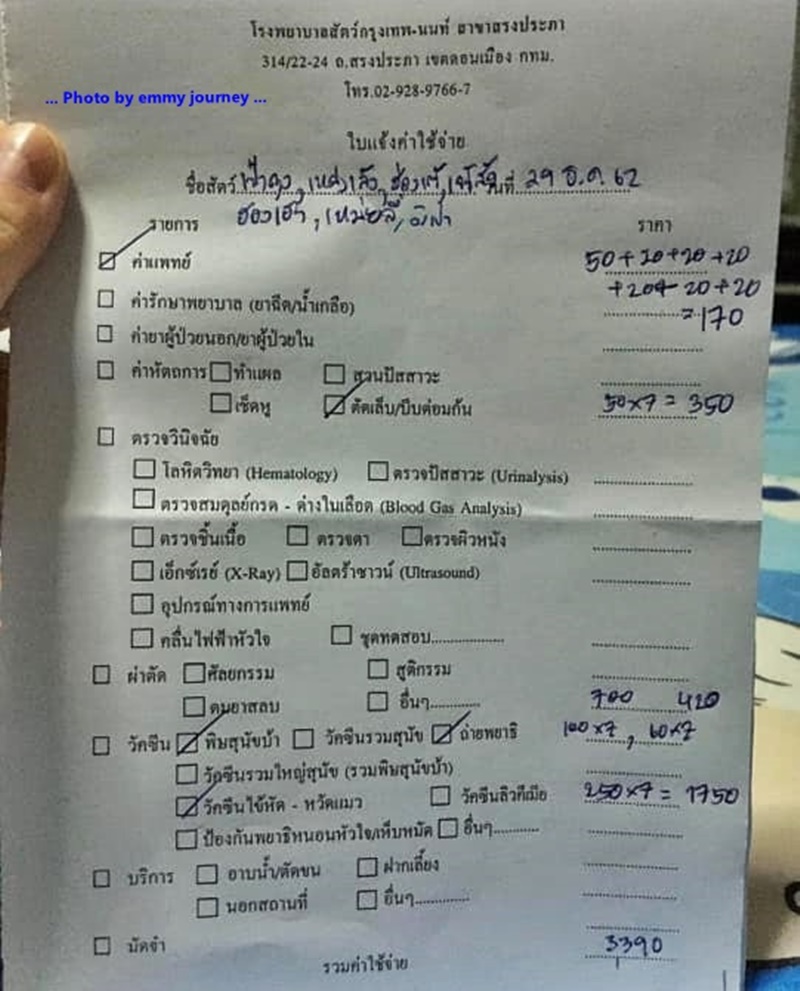 โรงพยาบาลสัตว์กรุงเทพ-นนท์ สาขาสรงประภา
314/22-24 ถ.สรงประภา เขตดอนเมือง กทม.
โทร.02-928-9766-7
... Photo by emmy journey ...
ใบแจ้งค่าใช้จ่าย
ชื่อสัตว์ วันที่ 29 ธ.ค. 62
ฮองเฮา, เหมยลี่,
รายการ ราคา
ค่าแพทย์ 50+20+20+20
+20+20+20
ค่ารักษาพยาบาล (ยาฉีด/น้ำเกลือ) =170
ค่ายาผู้ป่วยนอก/ยาผู้ป่วยใน
ค่าหัตถการ ทำแผล สวนปัสสาวะ
เช็ดหู ตัดเล็บ/บีบต่อมก้น 50x7 = 350
ตรวจวินิจฉัย
โลหิตวิทยา (Hematology) ตรวจปัสสาวะ (Urinalysis)
ตรวจสมดุลย์กรด - ด่างในเลือด (Blood Gas Analysis)
ตรวจชิ้นเนื้อ ตรวจตา ตรวจผิวหนัง
เอ็กซ์เรย์ (X-Ray) อัลตร้าซาวน์ (Ultrasound)
อุปกรณ์ทางการแพทย์
คลื่นไฟฟ้าหัวใจ ชุดทดสอบ
ผ่าตัด ศัลยกรรม สูติกรรม
ดมยาสลบ อื่นๆ 700 420
วัคซีน พิษสุนัขบ้า วัคซีนรวมสุนัข ถ่ายพยาธิ 100x7, 60x7
วัคซีนรวมใหญ่สุนัข (รวมพิษสุนัขบ้า)
วัคซีนไข้หัด - หวัดแมว วัคซีนลิวคีเมีย 250x7 = 1750
ป้องกันพยาธิหนอนหัวใจ/เห็บหมัด อื่นๆ
บริการ อาบน้ำ/ตัดขน ฝากเลี้ยง
นอกสถานที่ อื่นๆ
มัดจำ 3390
รวมค่าใช้จ่าย